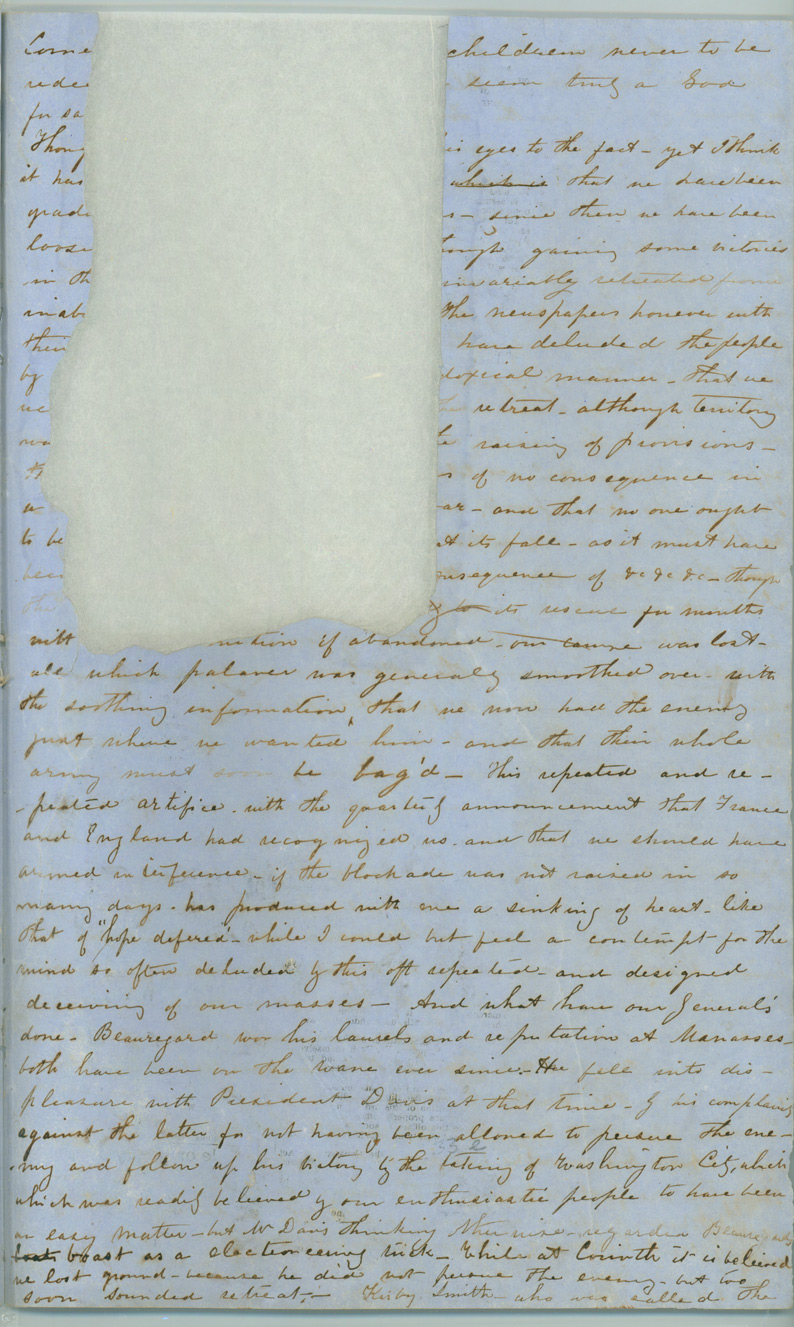 Come children never to be
rede seem truly a God
for sa
Thoug is eyes to the fact - yet I think
it has which is that we have been
grad s - since then we have been
loose hough gaining some victories
in th invariably retreated from
inab the newspapers however with
thei have deluded the people
by doxical manner - that we
we he retreat - although territory
wa e raising of provisions -
th s of no consequence in
a ar - and that no one ought
to be at its fall - as it must have
been nsequence of &c &c &c - though
the g to its rescue for months
with nition if abandoned - our cause was lost -
all which palaver was generally smoothed over - with
the soothing information that we now had the enemy
just where we wanted him - and that their whole
army must soon be bag'd - This repeated and re-
-peated artifice - with the quarterly announcement that France
and England had recognized us - and that we should have
armed interference - if the blockade was not raised in so
many days - has produced with me a sinking of heart - like
that of "hope defered" - while I could but feel a contempt for the
mind so often deluded by this oft repeated - and designed
deceiving of our masses - And what have our Generals
done - Beauregard won his laurels and reputation at Manasses -
both have been on the wane ever since. - He fell into dis-
pleasure with President Davis at that time - by his complaining
against the latter for not having been allowed to persue the ene-
-my and follow up his victory by the taking of Washington City, which
which was readily believed by our enthusiastic people to have been
an easy matter - but Mr Davis thinking otherwise - regarded Beauregards
boast as a electioneering trick - While at Corinth it is believed
we lost ground - because he did not persue the enemy - but too
soon sounded retreat; - Kirby Smith - who was called the